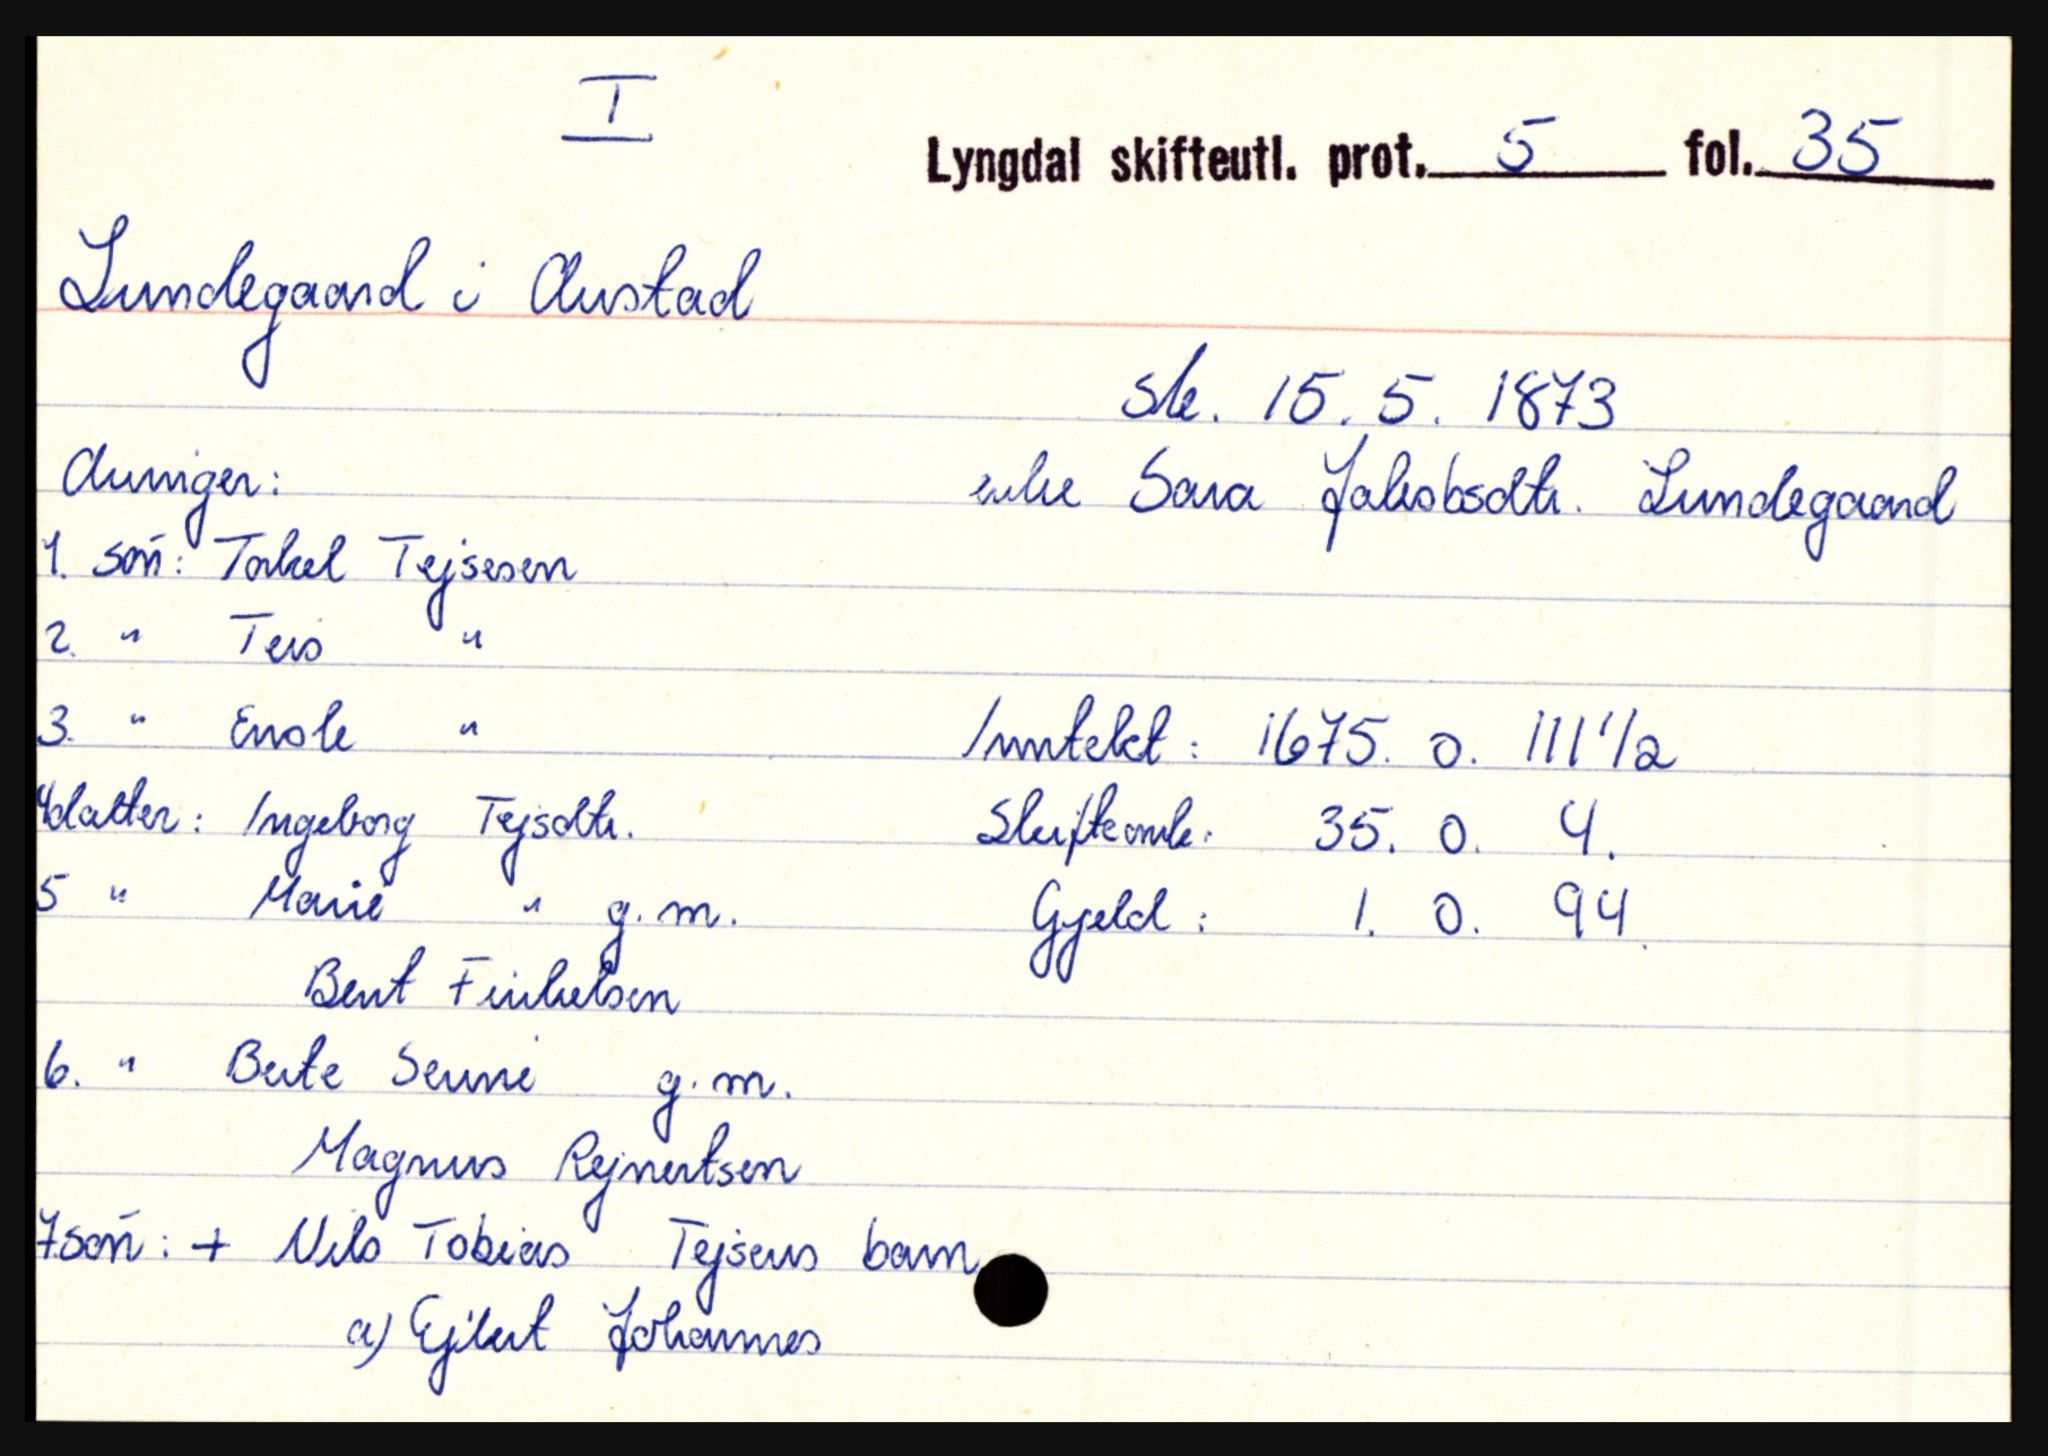 I
Lyngdal skifteutl. prot. 5 fol. 35
Lundegaard i Austad
sk. 15. 5. 1873
Arvinger:
enke Sara Jakobsdtr. Lundegaard
1. søn: Torkel Tejsesen
2. " Teis "
3. " Enok "
Inntekt: 1675. 0. 111 1/2
4 datter: Ingeborg Tejsdtr.
Skifteomk: 35. 0. 4.
5 " Marie " g.m.
Gjeld: 1. 0. 94.
Bent Finkelsen
6. " Berte Serine g.m.
Magnus Rejnertsen
7. søn: + Nils Tobias Tejsens barn
a) Ejlert Johannes